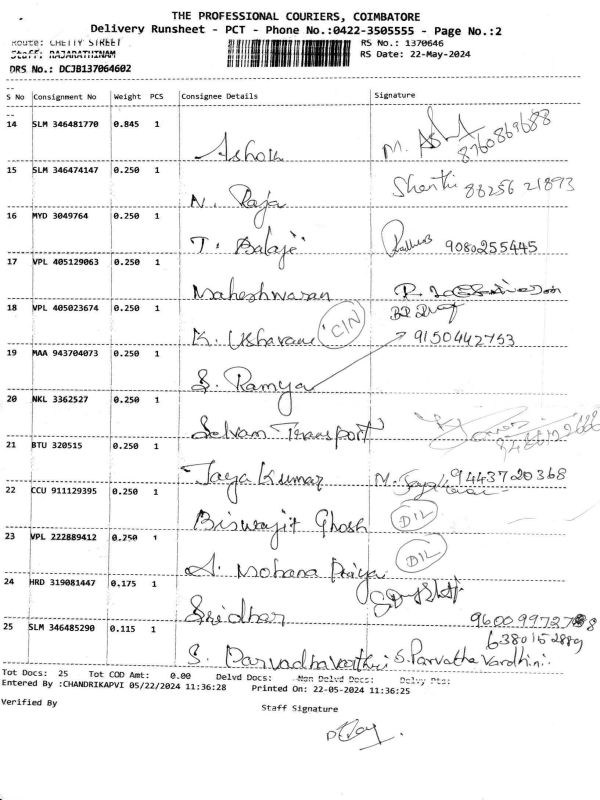 THE PROFESSIONAL COURIERS, COIMBATORE
Delivery Runsheet - PCT - Phone No.:0422-3505555 - Page No.:2
Route: CHETTY STREET RS No.: 1370646
Staff: RAJARATHINAM RS Date: 22-May-2024
DRS No.: DCJB137064602
S No Consignment No Weight PCS Consignee Details Signature
14 SLM 346481770 0.845 1
Ashok M. Ash 8760869688
15 SLM 346474147 0.250 1
N. Raja Shanthi 88256 21893
16 MYD 3049764 0.250 1
T. Balaji 9080255445
17 VPL 405129063 0.250 1
Maheshwaran
18 VPL 405023674 0.250 1
K. Usharani CIN 9150442753
19 MAA 943704073 0.250 1
S. Ramya
20 NKL 3362527 0.250 1
Selvam Transport
21 BTU 320515 0.250 1
Jaya Kumar M. Jaya 9443720368
22 CCU 911129395 0.250 1
Biswajit Ghosh DIL
23 VPL 222889412 0.250 1
A. Mohana Priya DIL
24 HRD 319081447 0.175 1
Sridhar 9600997278
25 SLM 346485290 0.115 1 6380152889
S. Parvadhavarthini S. Parvatha Vardhini.
Tot Docs: 25 Tot COD Amt: 0.00 Delvd Docs: Non Delvd Docs: Delvy Pts:
Entered By :CHANDRIKAPVI 05/22/2024 11:36:28 Printed On: 22-05-2024 11:36:25
Verified By
Staff Signature